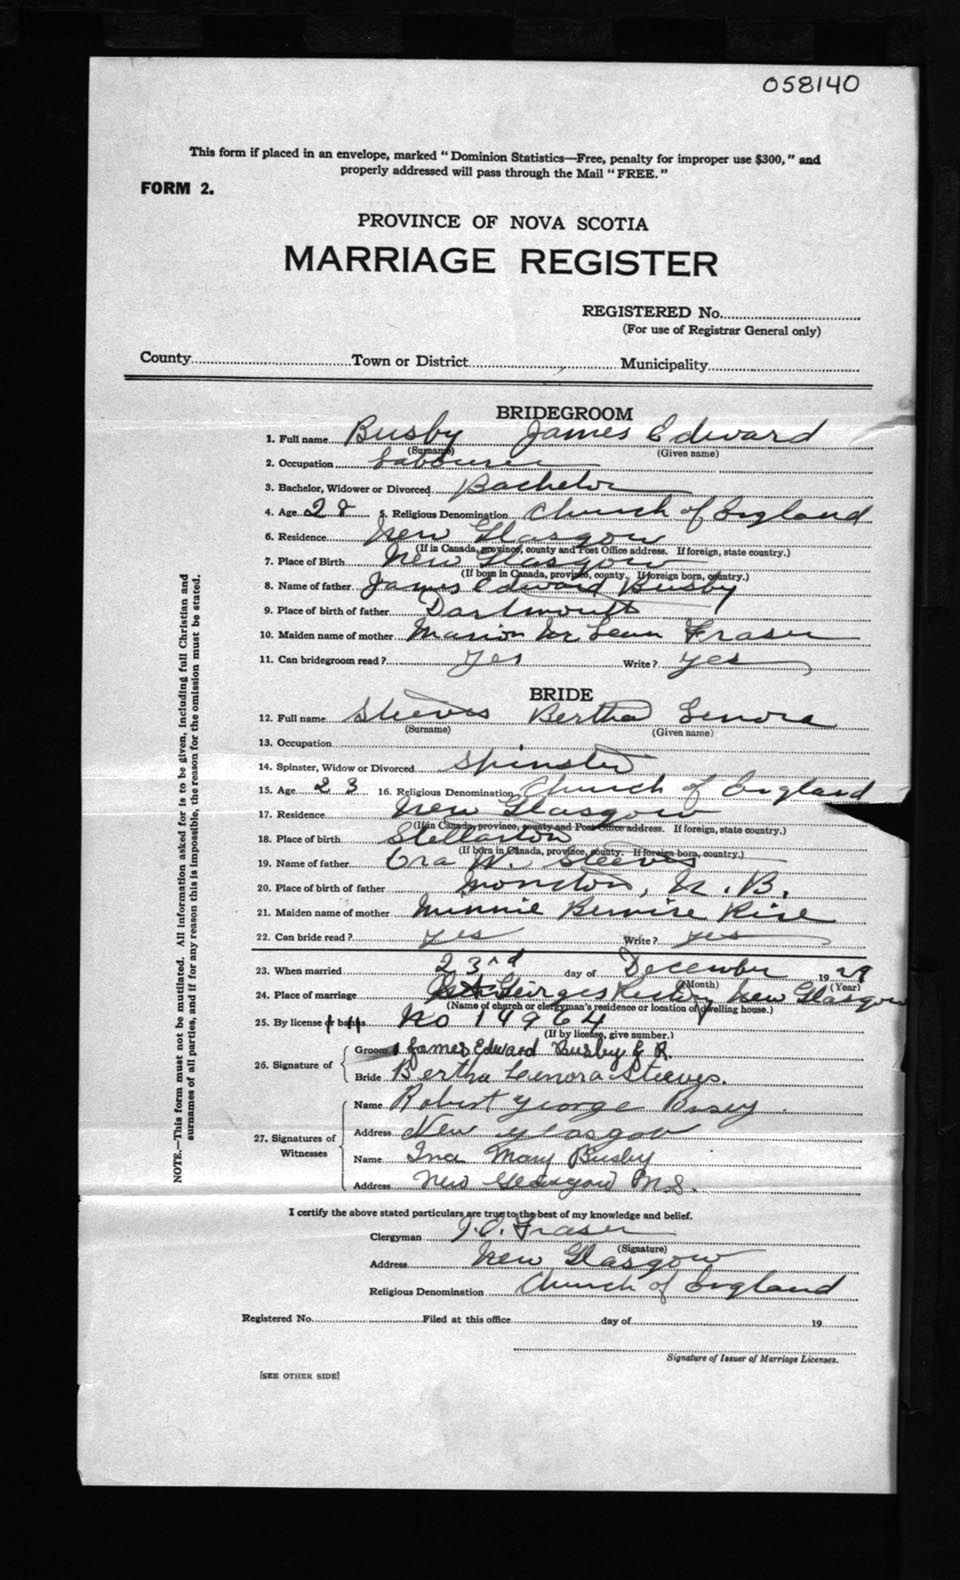 058140
This form if placed in an envelope, marked "Dominion Statistics—Free, penalty for improper use $300," and
properly addressed will pass through the Mail "FREE."
FORM 2.
PROVINCE OF NOVA SCOTIA
MARRIAGE REGISTER
REGISTERED No.
(For use of Registrar General only)
County Town or District Municipality
BRIDEGROOM
1. Full name Busby James Edward
(Surname) (Given name)
2. Occupation Labourer
3. Bachelor, Widower or Divorced Bachelor
4. Age 28 5. Religious Denomination Church of England
6. Residence New Glasgow
(If in Canada, province, county and Post Office address. If foreign, state country.)
7. Place of Birth New Glasgow
(If born in Canada, province, county. If foreign born, country.)
8. Name of father James Edward Busby
9. Place of birth of father Dartmouth
10. Maiden name of mother Marion Fraser
11. Can bridegroom read? yes Write? yes
BRIDE
12. Full name Steeves Bertha Lenora
(Surname) (Given name)
13. Occupation
14. Spinster, Widow or Divorced Spinster
15. Age 23 16. Religious Denomination Church of England
17. Residence New Glasgow
(If in Canada, province, county and Post Office address. If foreign, state country.)
18. Place of birth Stellarton
(If born in Canada, province, county. If foreign born, country.)
19. Name of father Ora W. Steeves
20. Place of birth of father Moncton, N. B.
21. Maiden name of mother Minnie
22. Can bride read? yes Write? yes
23. When married 23rd day of December 1929
(Month) (Year)
24. Place of marriage St Georges New Glasgow
(Name of church or clergyman's residence or location of dwelling house.)
25. By license or banns No 14964
(If by license, give number.)
26. Signature of
Groom James Edward Busby
Bride Bertha Lenora Steeves.
27. Signatures of Witnesses
Name Robert George Busby
Address New Glasgow
Name Ina Mary Busby
Address New Glasgow N.S.
I certify the above stated particulars are true to the best of my knowledge and belief.
Clergyman Fraser
(Signature)
Address New Glasgow
Religious Denomination Church of England
Registered No. Filed at this office day of 19
Signature of Issuer of Marriage Licenses.
[SEE OTHER SIDE]
NOTE.—This form must not be mutilated. All information asked for is to be given, including full Christian and
surnames of all parties, and if for any reason this is impossible, the reason for the omission must be stated.